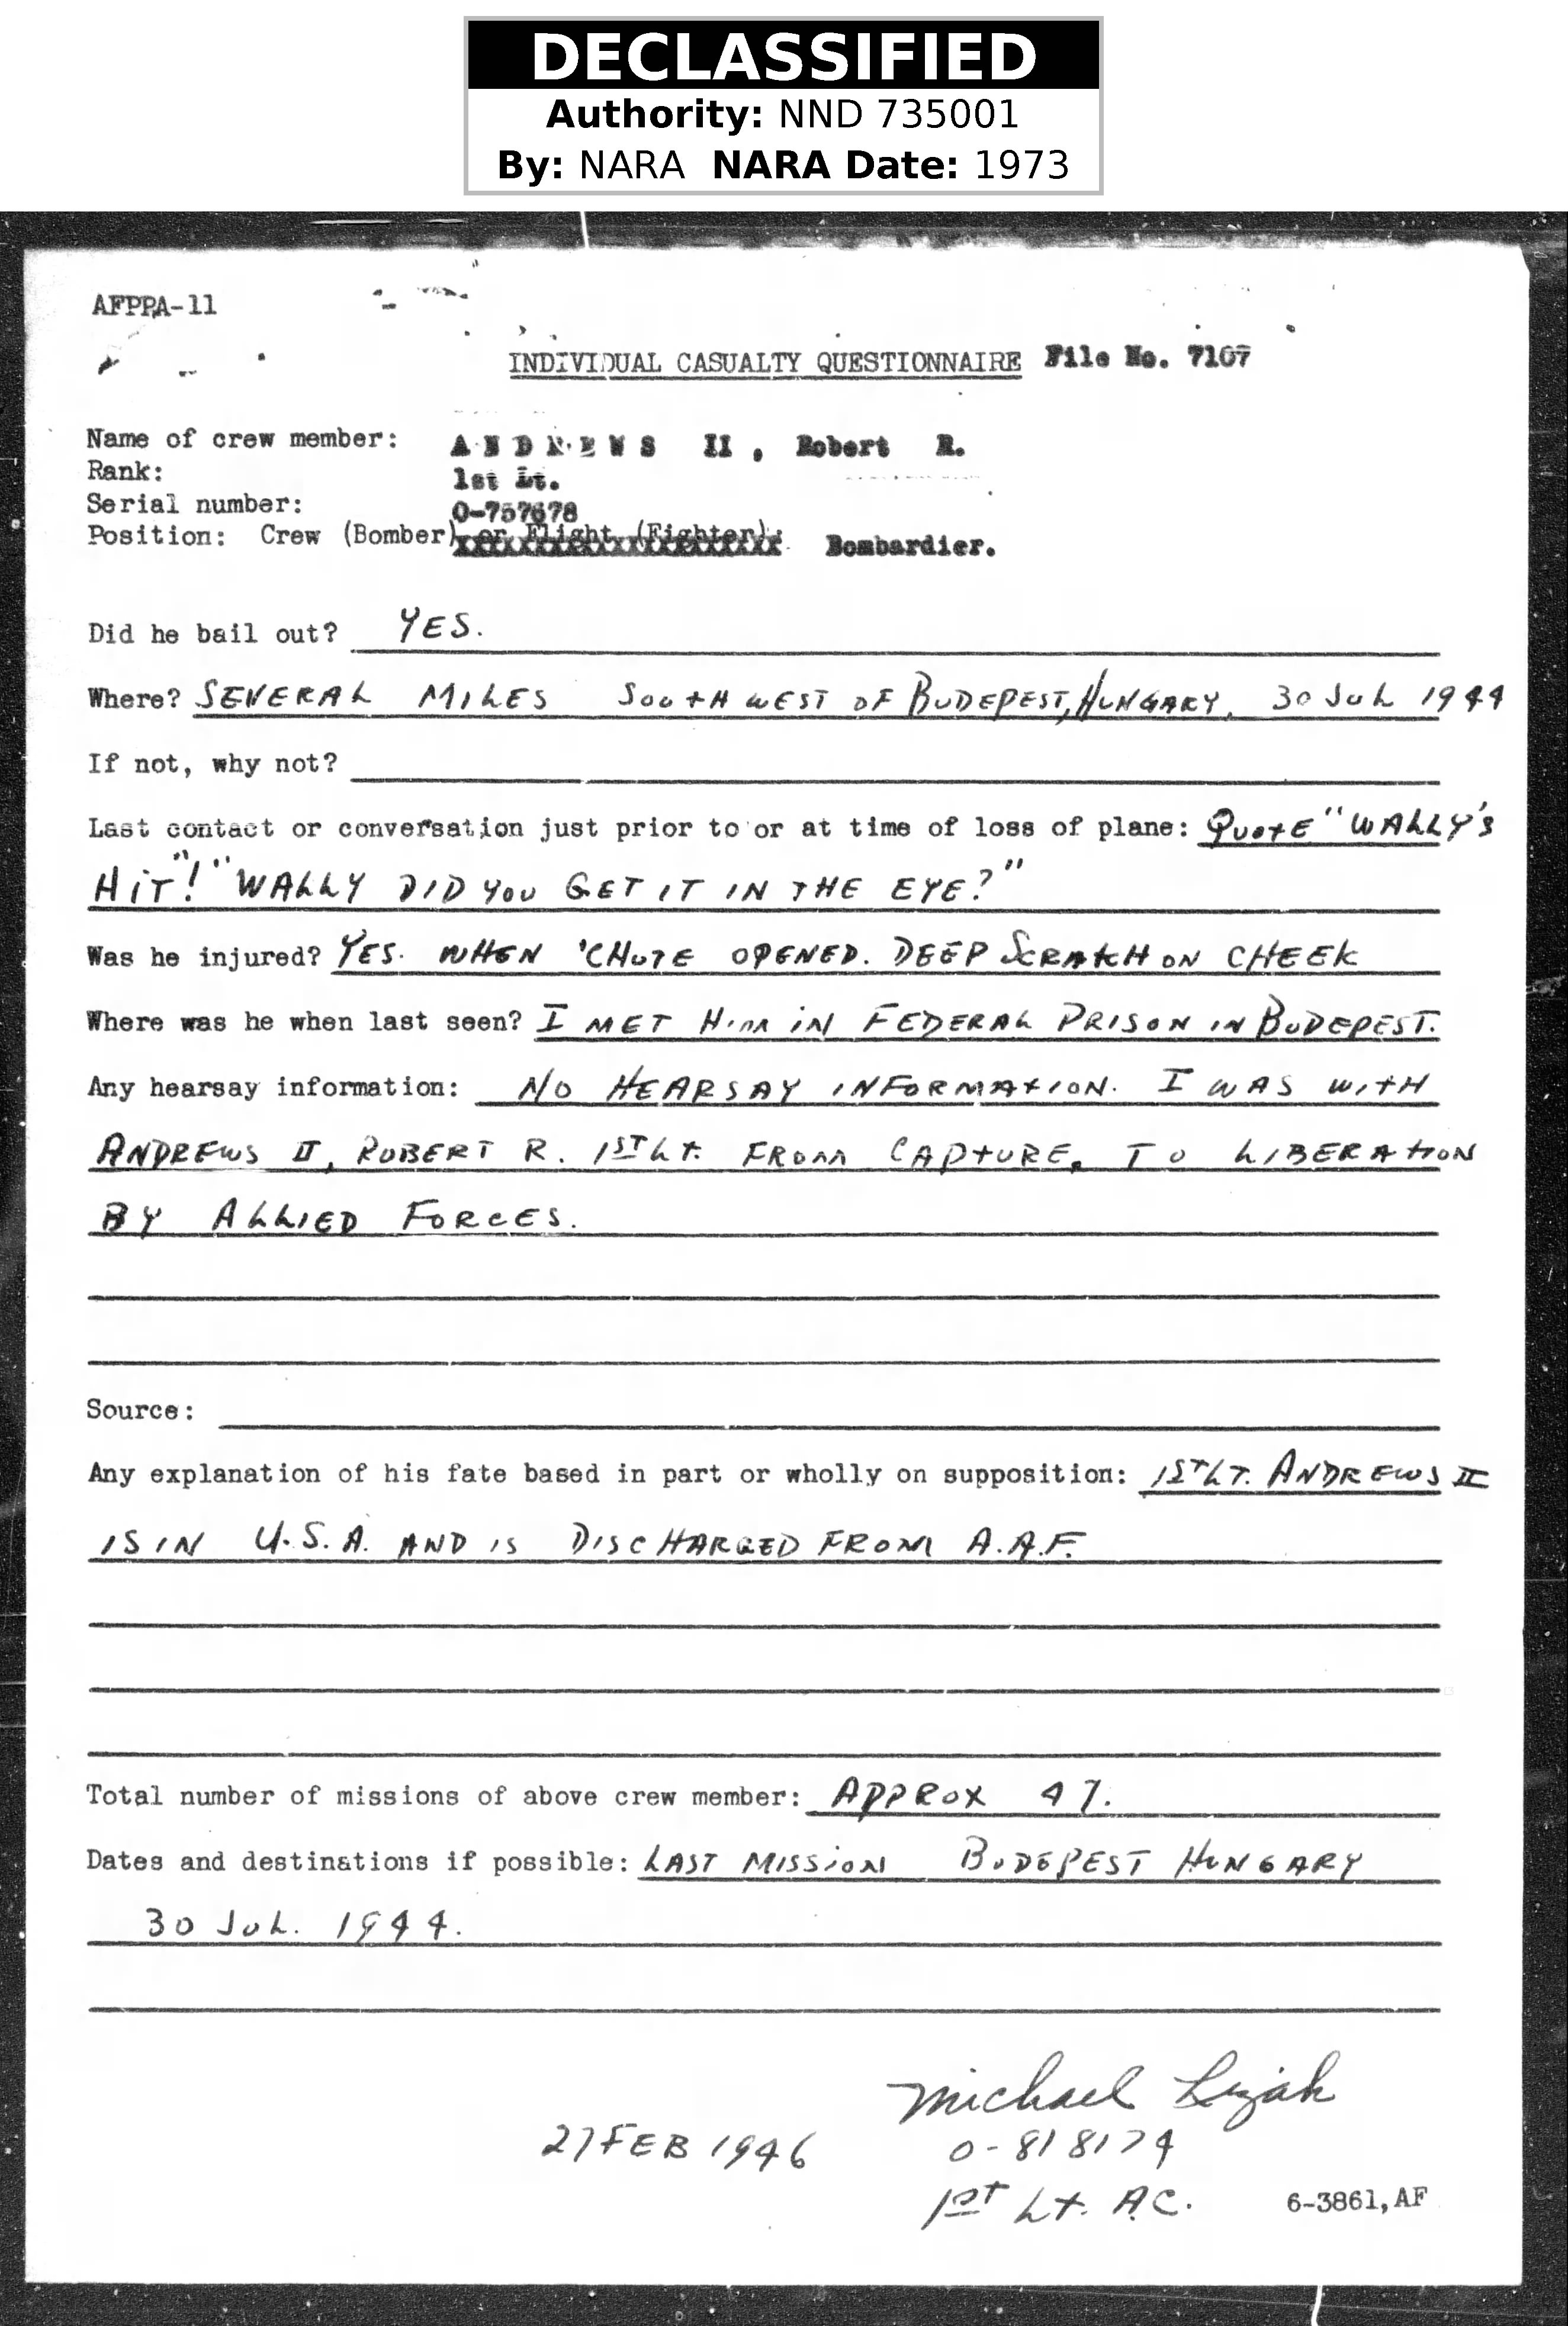 DECLASSIFIED
Authority: NND 735001
By: NARA NARA Date: 1973
AFPPA-11
INDIVIDUAL CASUALTY QUESTIONNAIRE File No. 7107
Name of crew member: ANDREWS II, Robert R.
Rank: 1st Lt.
Serial number: O-757678
Position: Crew (Bomber) or Flight (Fighter): Bombardier.
Did he bail out? YES.
Where? SEVERAL MILES SOUTHWEST OF BUDEPEST, HUNGARY. 30 JUL 1944
If not, why not?
Last contact or conversation just prior to or at time of loss of plane: QUOTE "WALLY'S
HIT"! "WALLY DID YOU GET IT IN THE EYE?"
Was he injured? YES. WHEN 'CHUTE OPENED. DEEP SCRATCH ON CHEEK
Where was he when last seen? I MET HIM IN FEDERAL PRISON IN BUDEPEST.
Any hearsay information: NO HEARSAY INFORMATION. I WAS WITH
ANDREWS II, ROBERT R. 1ST LT. FROM CAPTURE, TO LIBERATION
BY ALLIED FORCES.
Source:
Any explanation of his fate based in part or wholly on supposition: 1ST LT. ANDREWS II
IS IN U.S.A. AND IS DISCHARGED FROM A.A.F.
Total number of missions of above crew member: APPROX 47.
Dates and destinations if possible: LAST MISSION BUDEPEST HUNGARY
30 JUL. 1944.
Michael
27 FEB 1946 O-818174
1ST Lt. A.C. 6-3861,AF